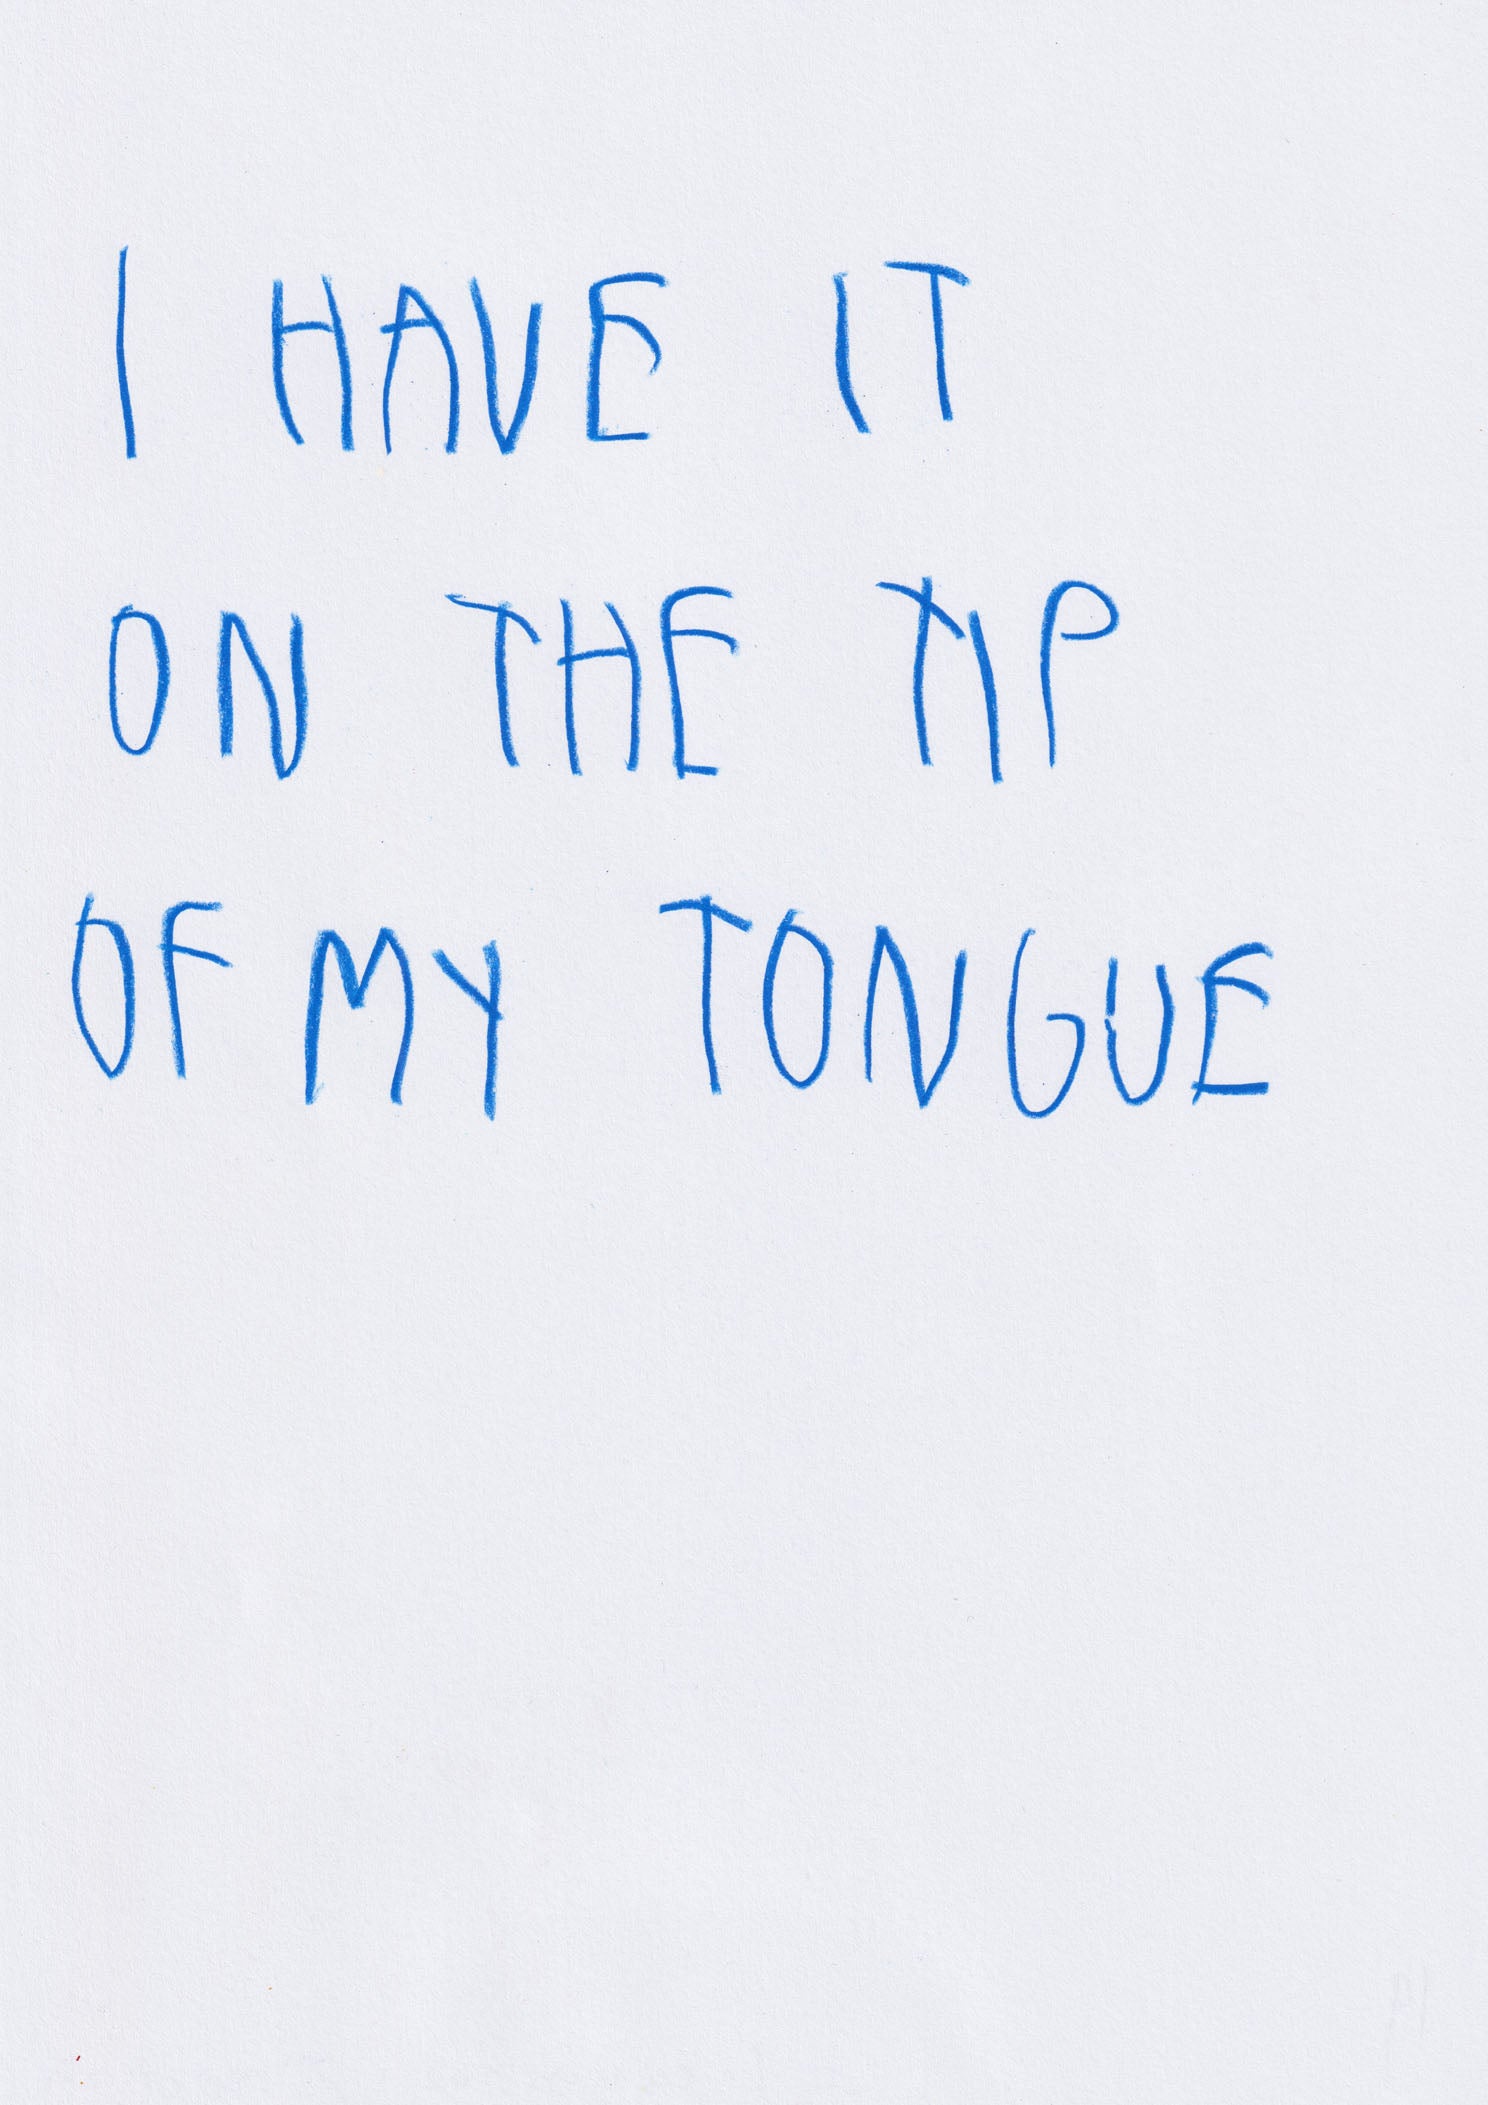 I HAVE IT
ON THE TIP
OF MY TONGUE